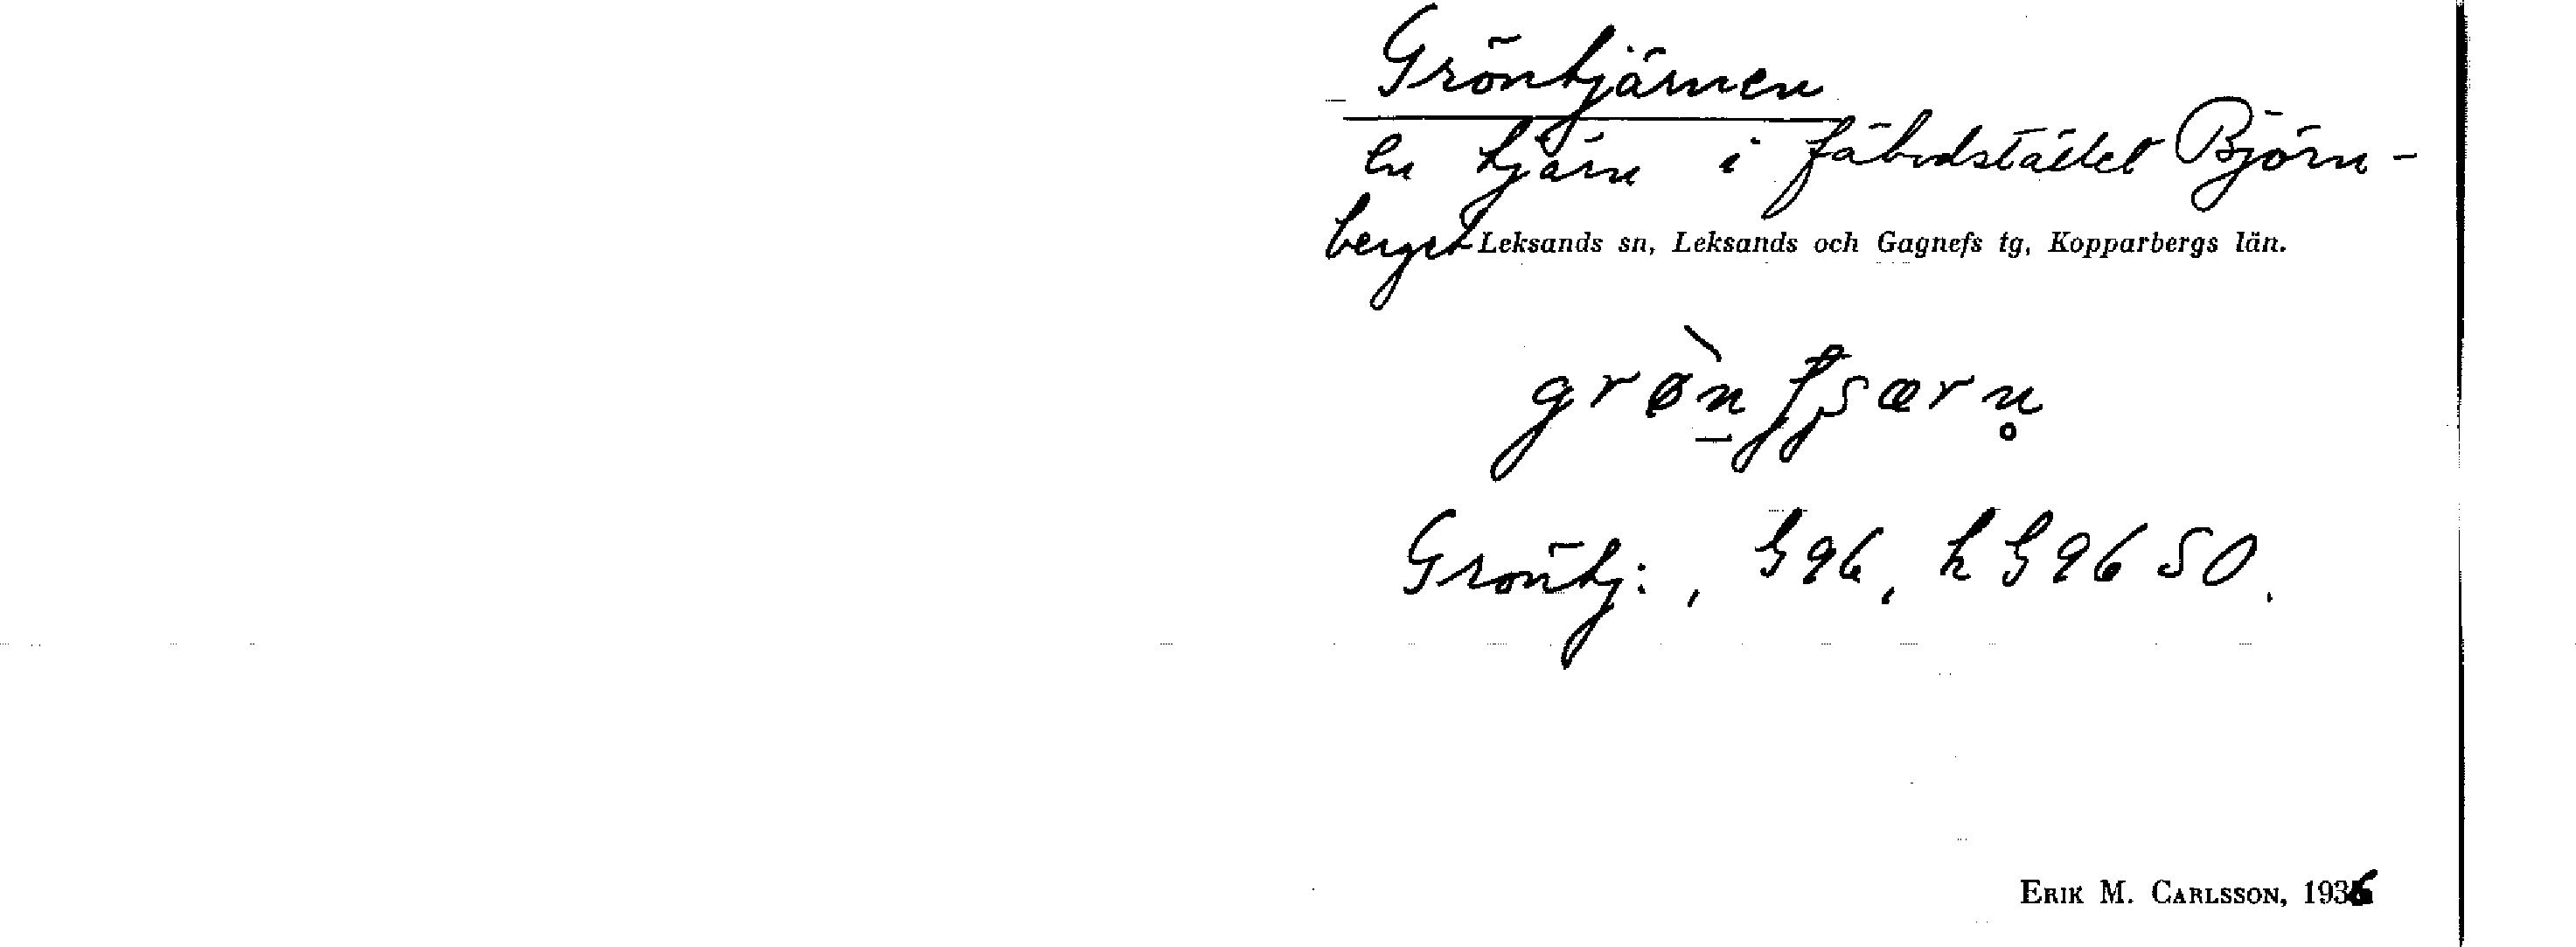 Gröntjärnen
en tjärn i fäbodstället Björn-
berget Leksands sn, Leksands och Gagnefs tg, Kopparbergs län.
Gröntj:, G96, h G96 SO.
ERIK M. CARLSSON, 1936